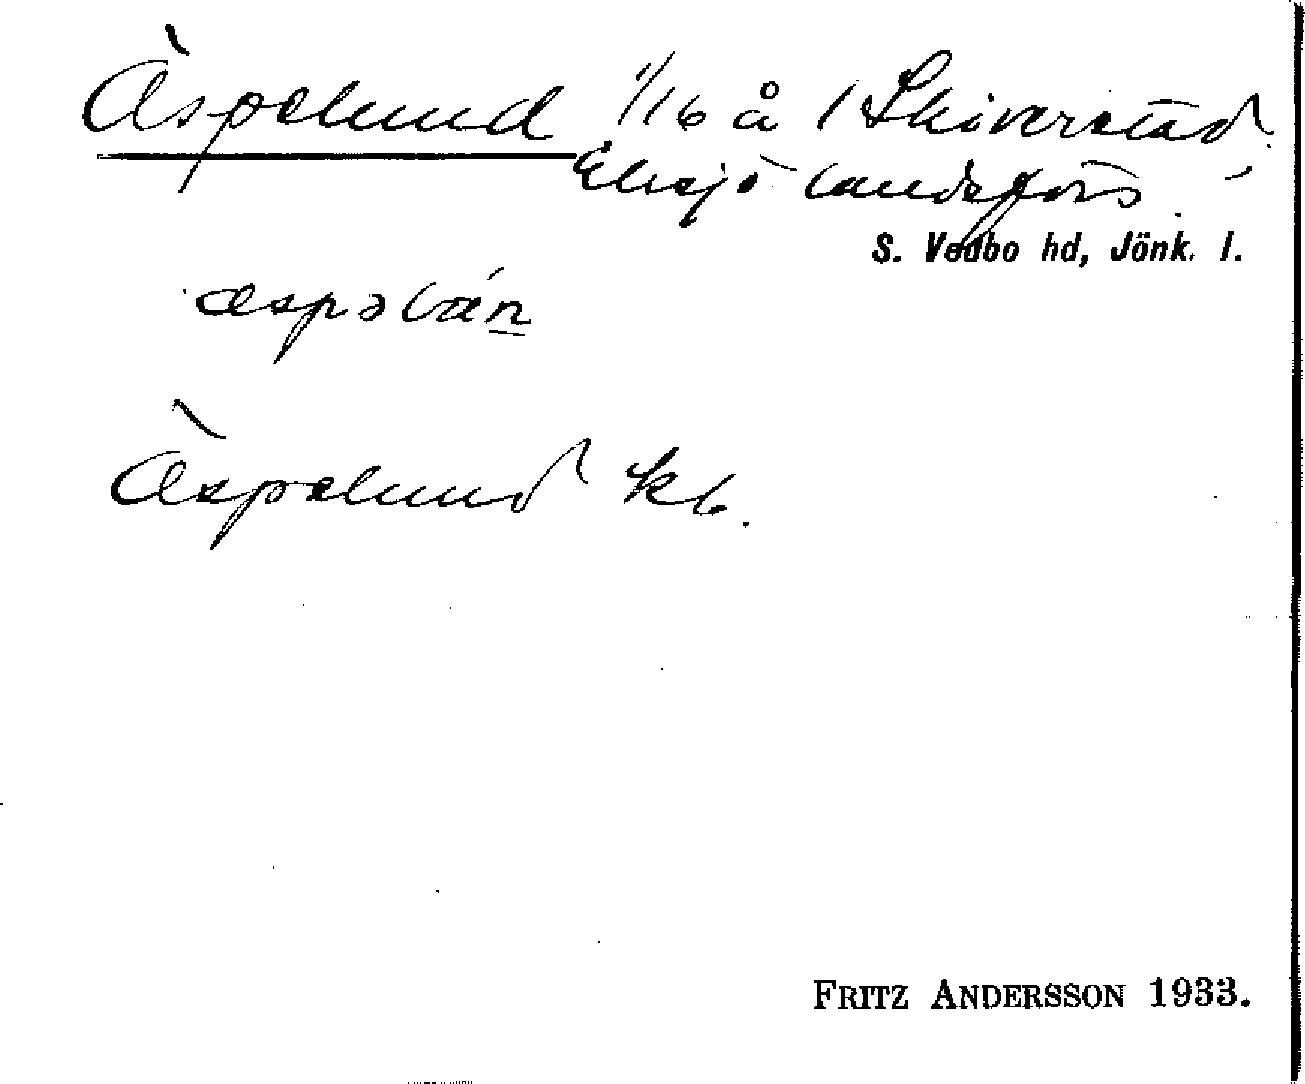 Äspelund 1/16 å 1 Skiverstad
Eksjö landsförs.
S. Vedbo hd, Jönk. l.
æspə
Äspelund kb.
FRITZ ANDERSSON 1933.